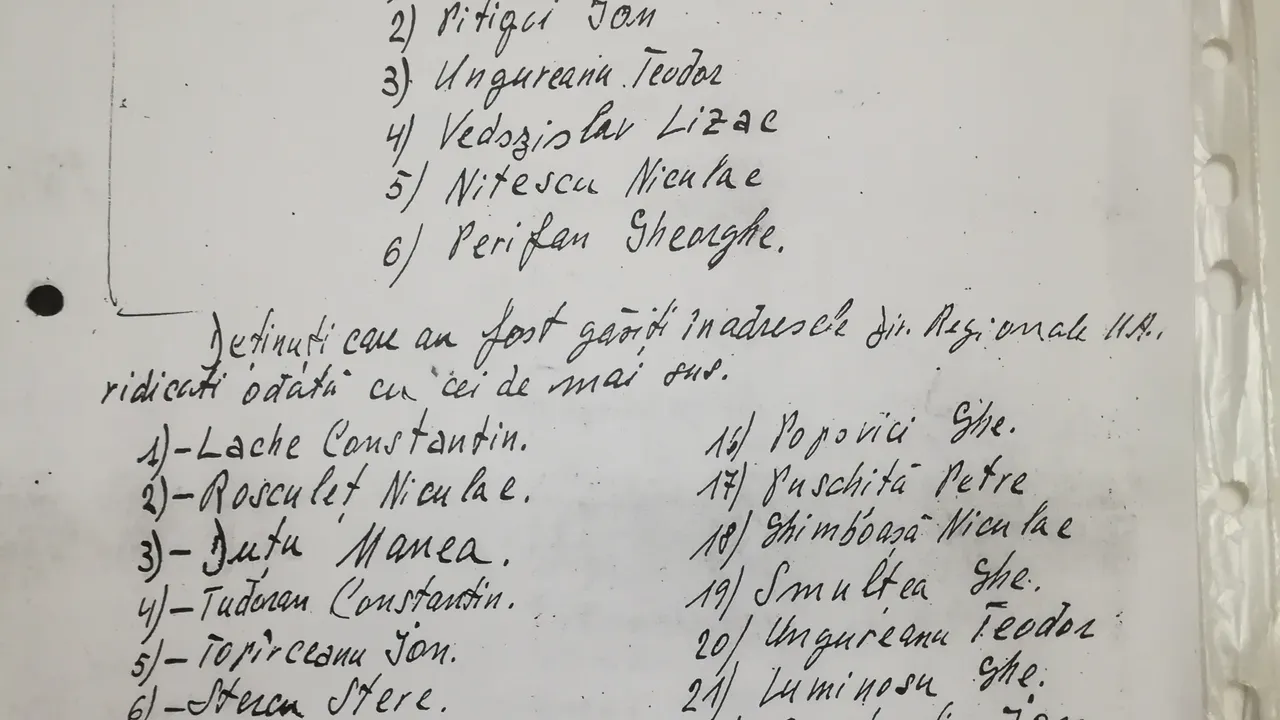 2) Pitigoi Ion
3) Ungureanu Teodor
4) Vedszislav Lizac
5) Nitescu Niculae
6) Perifan Gheorghe.
Deținuți care au fost găsiți în adresele din Regionale M.A.
ridicați odată cu cei de mai sus.
1)-Lache Constantin.
2)-Rosculeț Niculae.
3)-Duțu Manea.
4)-Tudoran Constantin.
5)-Topîrceanu Ion.
6)-Stercu Stere.
16) Popovici Ghe.
17) Puschită Petre
18) Ghimboașă Niculae
19) Smultea Ghe.
20) Ungureanu Teodor
21) Luminosu Ghe.